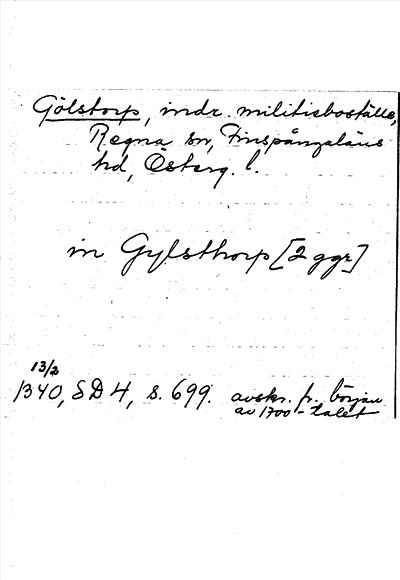 Gölstorp, indr. militieboställe,
Regna sn, Finspångaläns
hd, Österg. l.
in Gylsthorp [2 ggr]
13/2
1340, SD 4, s. 699. avskr. fr. början
av 1700-talet